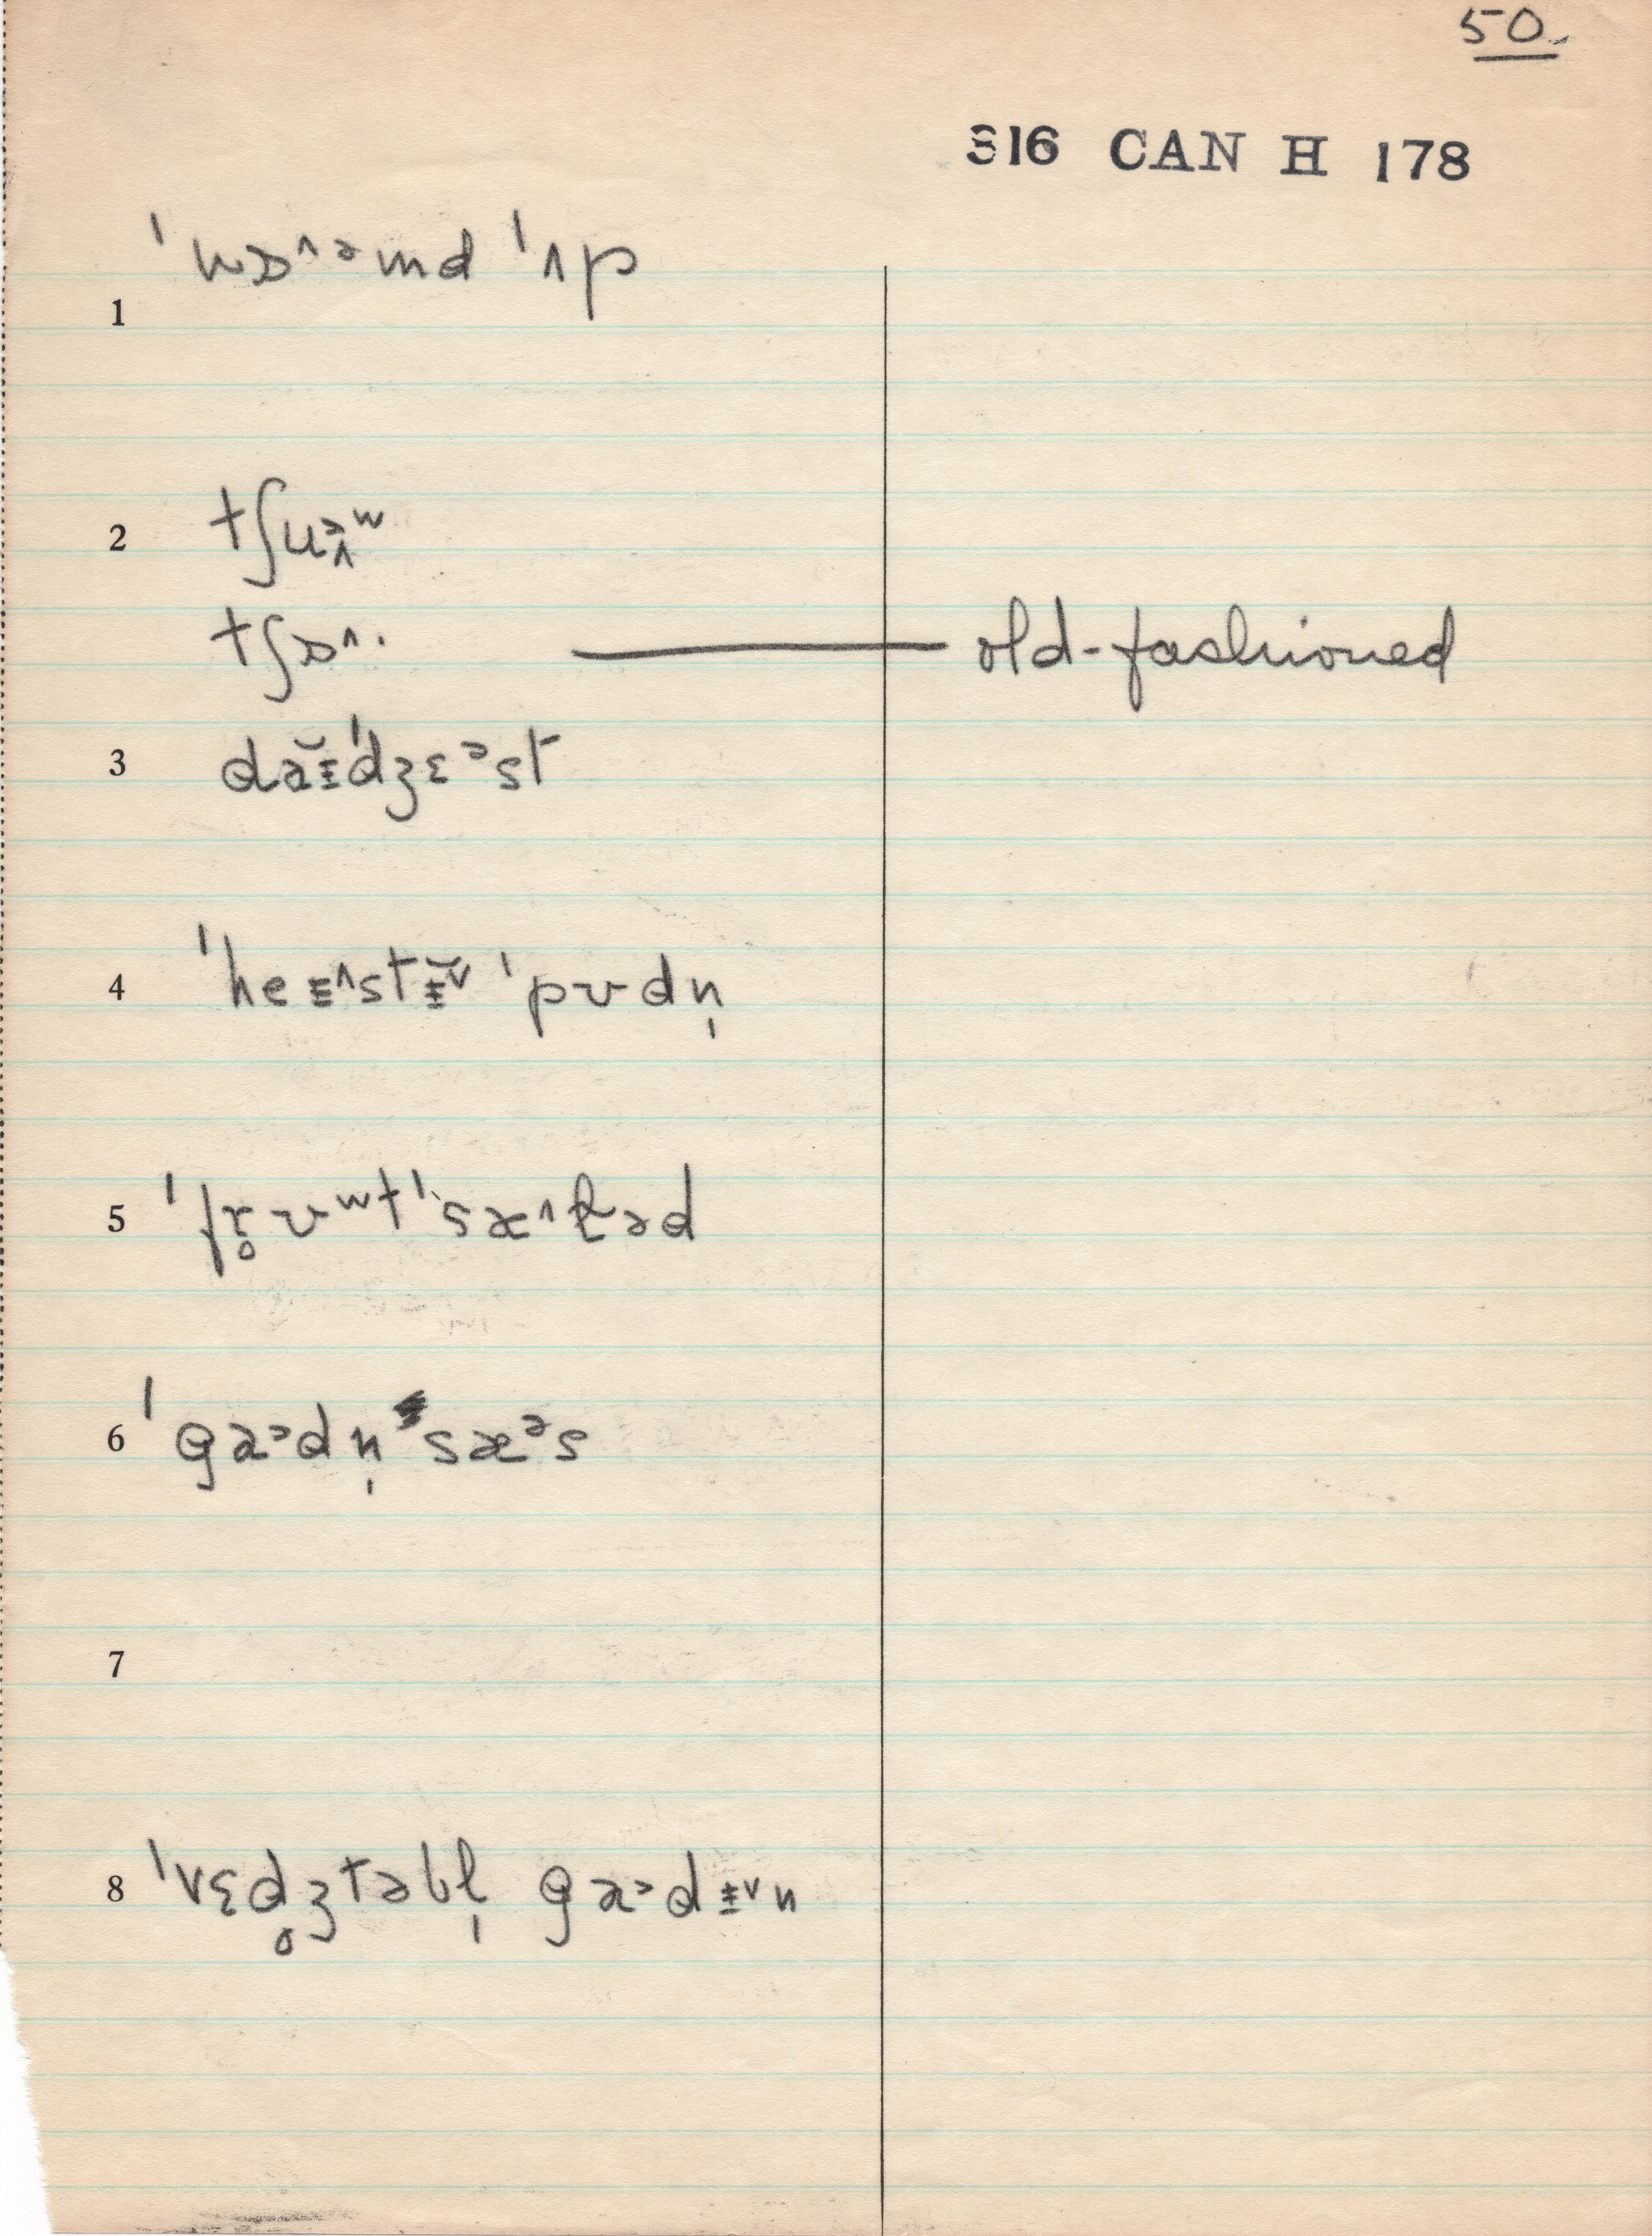 50.
S16 CAN H 178
1 ˈwɒ^ᵊmd ˈʌp
2 tʃuə̭ʷ
tʃɒ^· — old-fashioned
3 dəɨ̆ˈdʒɛᵊst
4 ˈheɨ^stɨ̆ᵛ ˈpʊdn̩
5 ˈfr̥ʊʷtˈsæ^ɫəd
6 ˈgaᵊdn̩sæᵊs
7
8 ˈvɛd̥ʒtəbɫ̩ gaᵊdɨᵛn